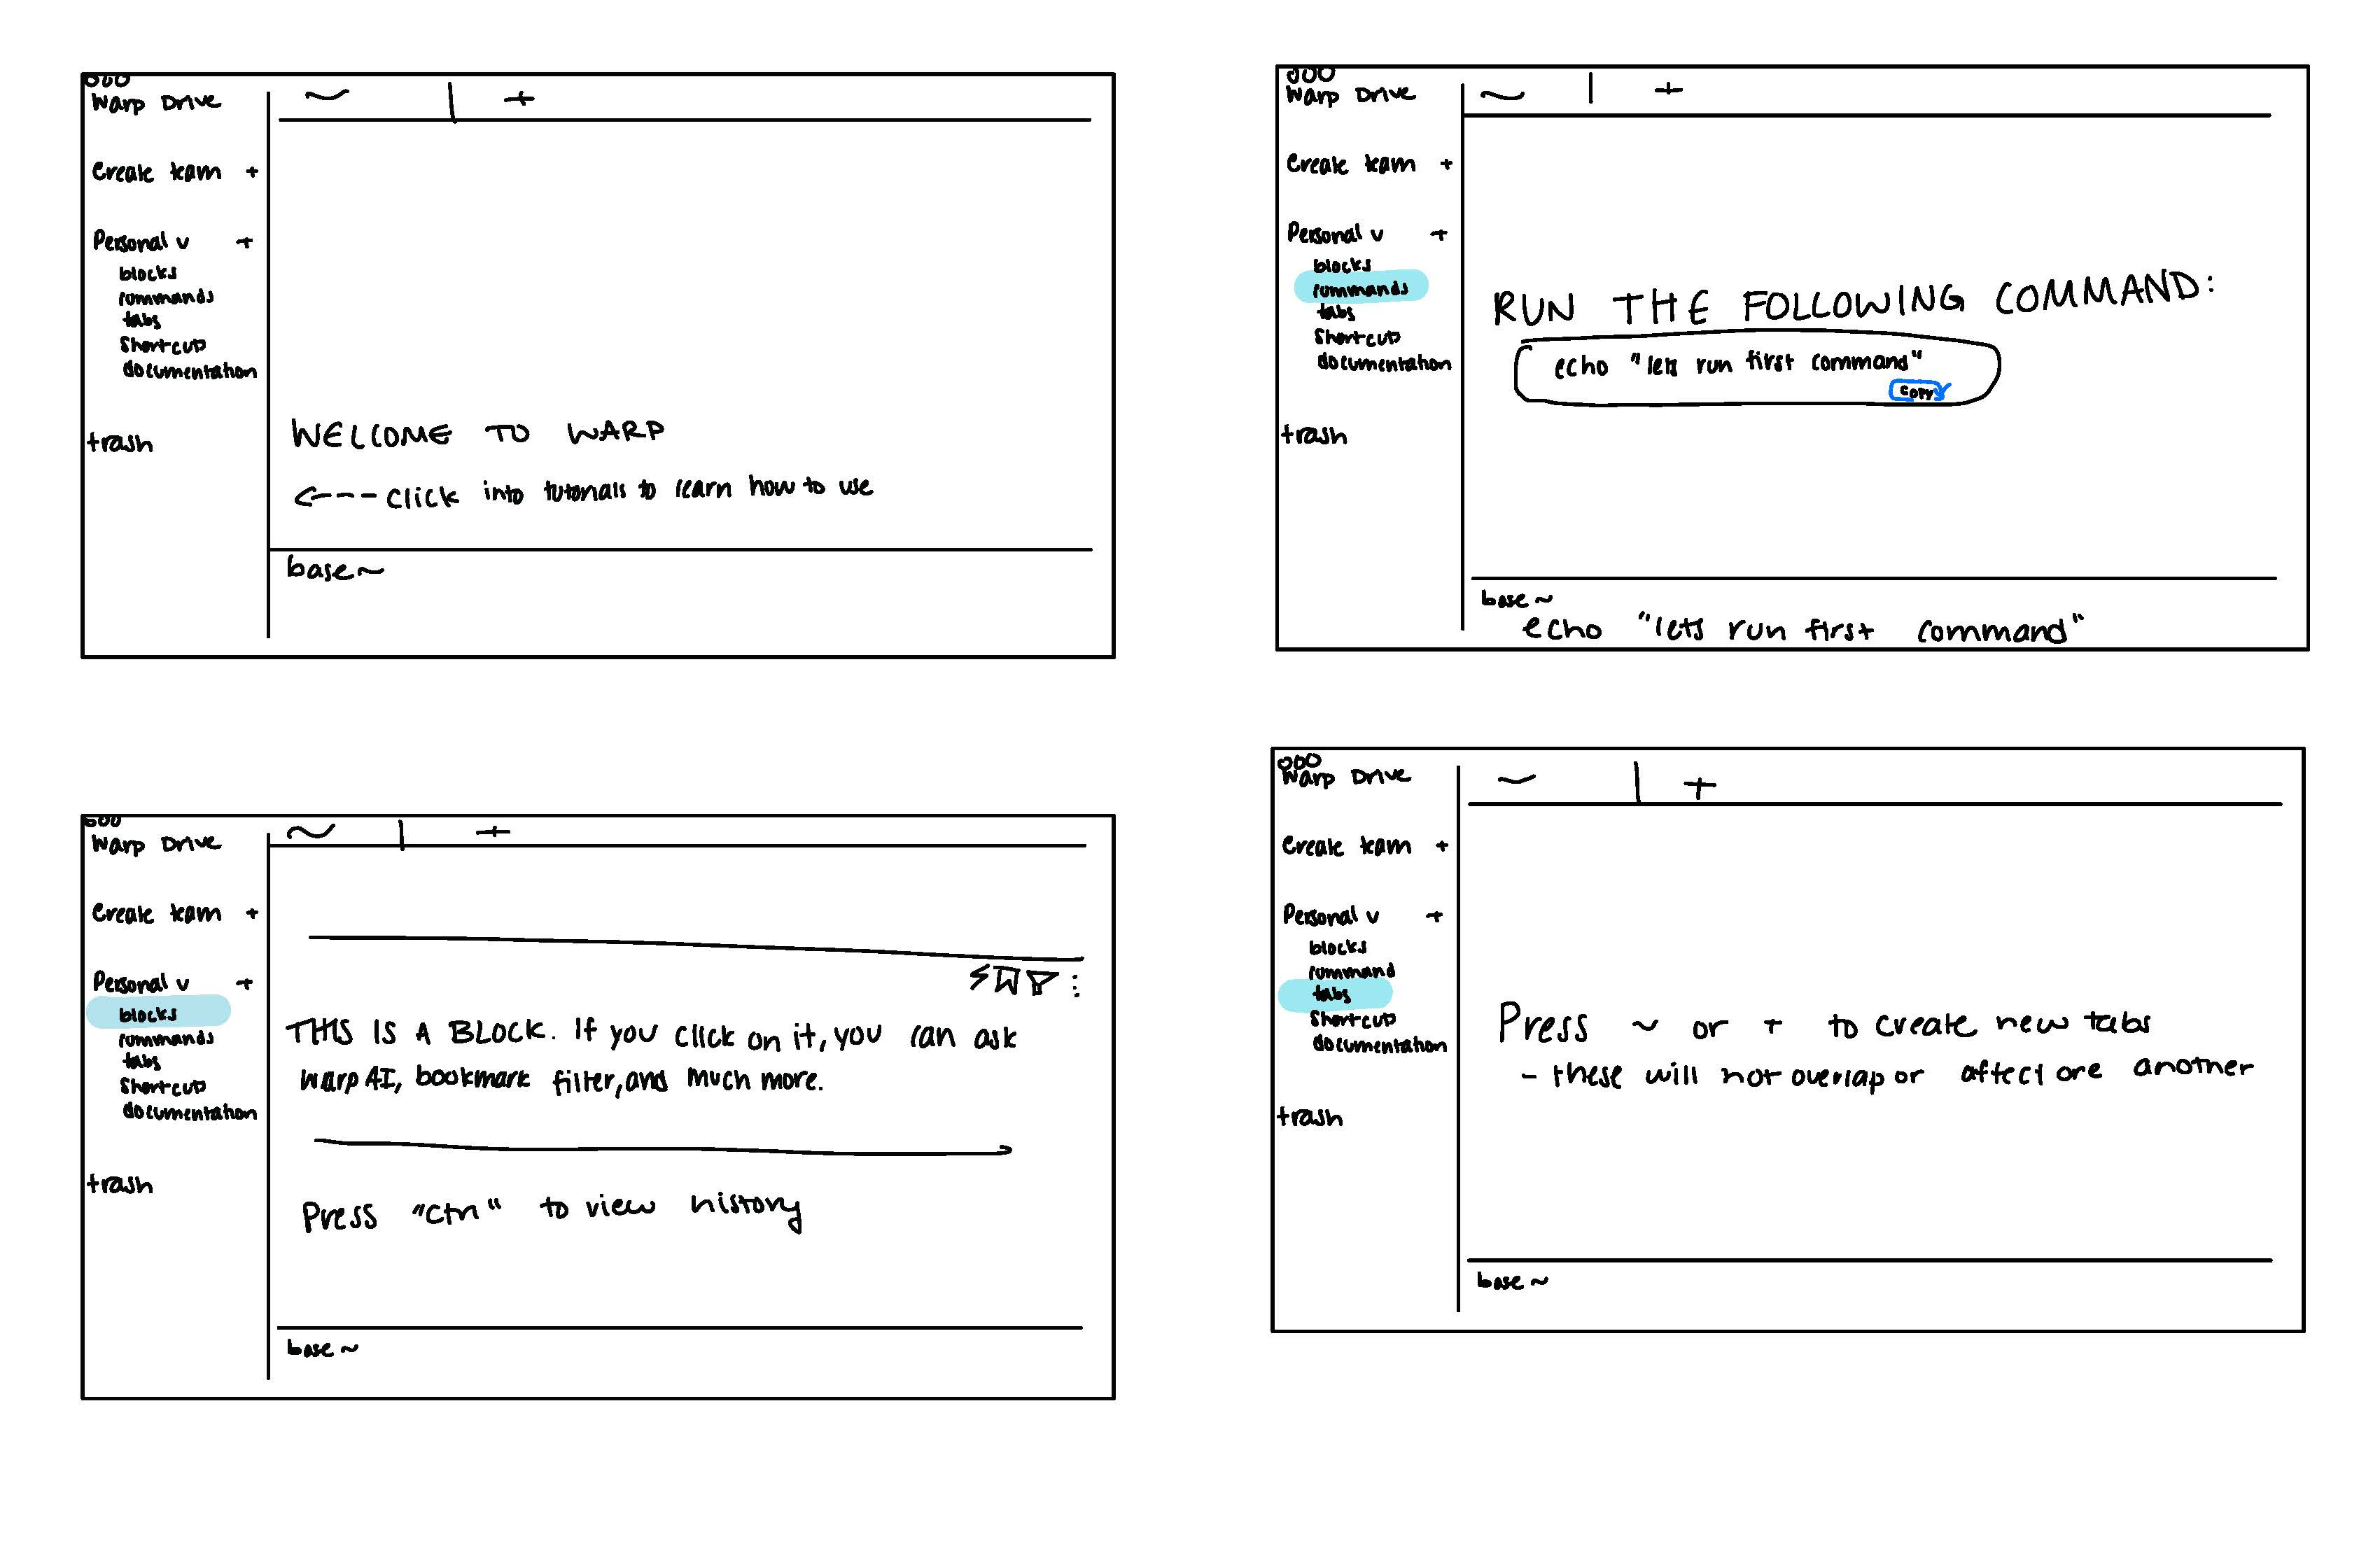 Warp Drive
~ | +
Create team +
Personal v +
blocks
commands
tabs
Shortcut
documentation
trash
WELCOME TO WARP
<---- click into tutorials to learn how to use
base~
Warp Drive
~ | +
Create team +
Personal v +
blocks
commands
tabs
Shortcut
documentation
trash
RUN THE FOLLOWING COMMAND:
echo "lets run first command"
copy
base~
echo "lets run first command"
Warp Drive
~ | +
Create team +
Personal v +
blocks
commands
tabs
Shortcut
documentation
trash
THIS IS A BLOCK. If you click on it, you can ask
warp AI, bookmark filter, and much more.
Press "ctrl" to view history
base~
Warp Drive
~ | +
Create team +
Personal v +
blocks
command
tabs
Shortcut
documentation
trash
Press ~ or + to create new tabs
- these will not overlap or affect one another
base~